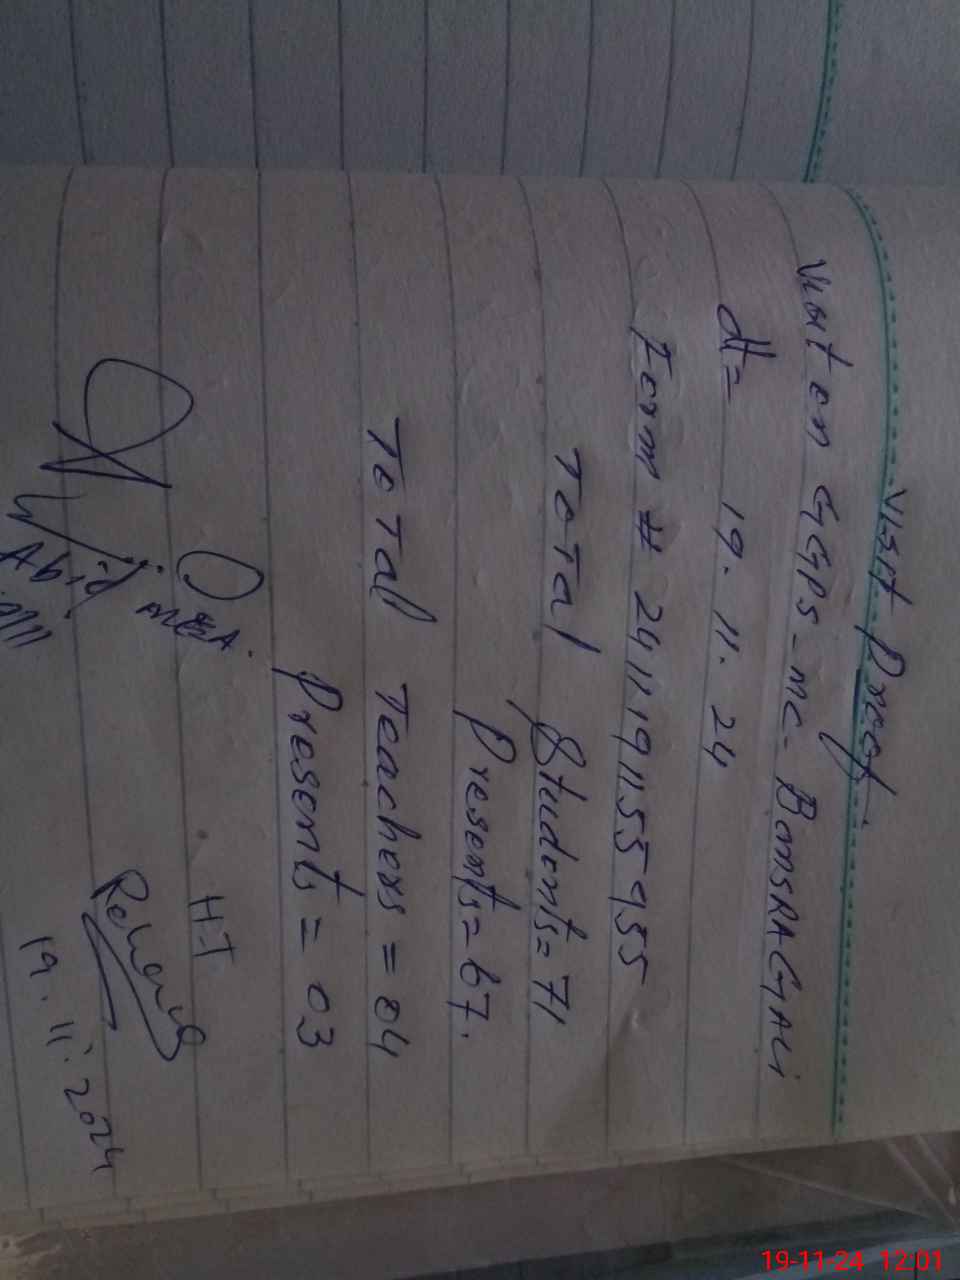 Visit Proof.
Visit on GGPS-mc- BANSRAGALi
dt= 19.11.24
Form # 2411191155955
Total Students=71
Presents=67.
Total Teachers=04
Presents=03
MEA.
Abid
H.T
19.11.2024
19-11-24 12:01